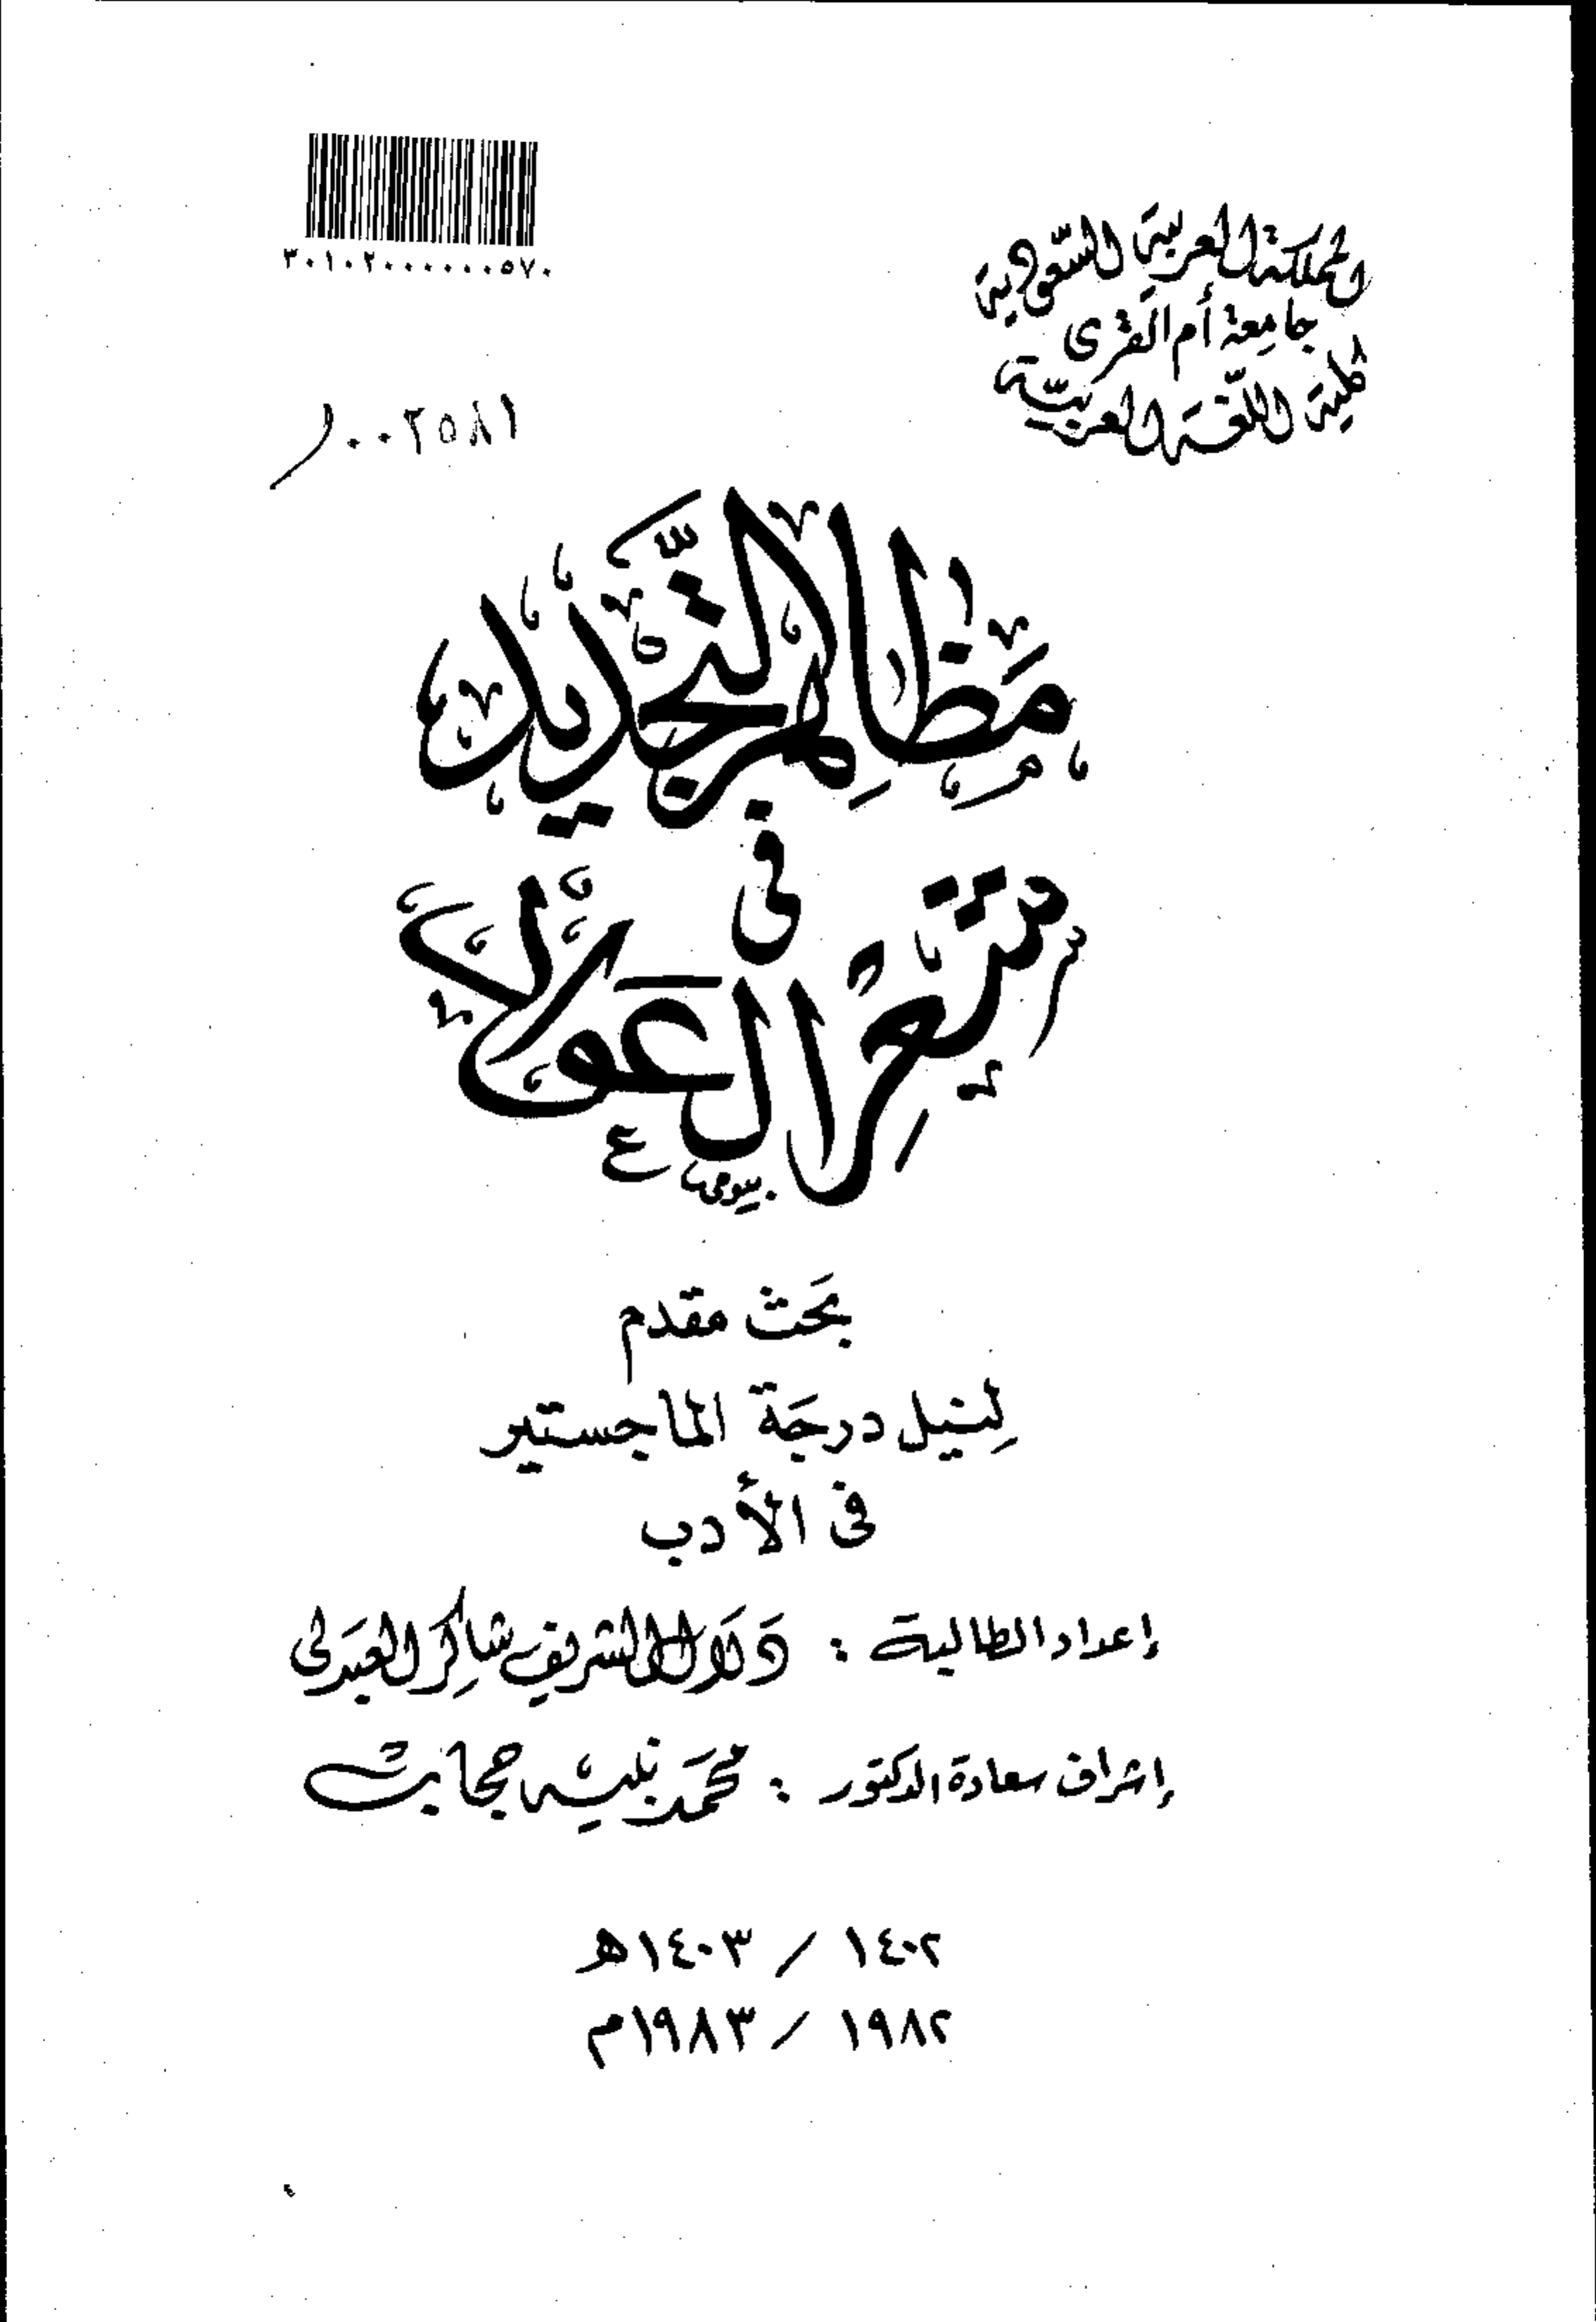 المملكة العربية السعودية
جامعة أم القرى
كلية اللغة العربية
٣٠١٠٢٠٠٠٠٠٠٥٧٠
٠٠٢٥٨١
مَظاهِر التَّجديد
فى
شِعْر العوّاد
بَحث مقدم
لِنيل درجَة الماجستير
فى الأدب
إعداد الطالبة : دَلَال الشريف شاكِر العبدَلى
إشراف سعادة الدكتور : محمَّد نبيه حجاب
١٤٠٢ / ١٤٠٣هـ
١٩٨٢ / ١٩٨٣م